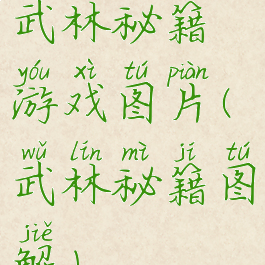 武林秘籍
yóu xì tú piàn
游戏图片(
wǔ lín mì jí tú
武林秘籍图
jiě
解)